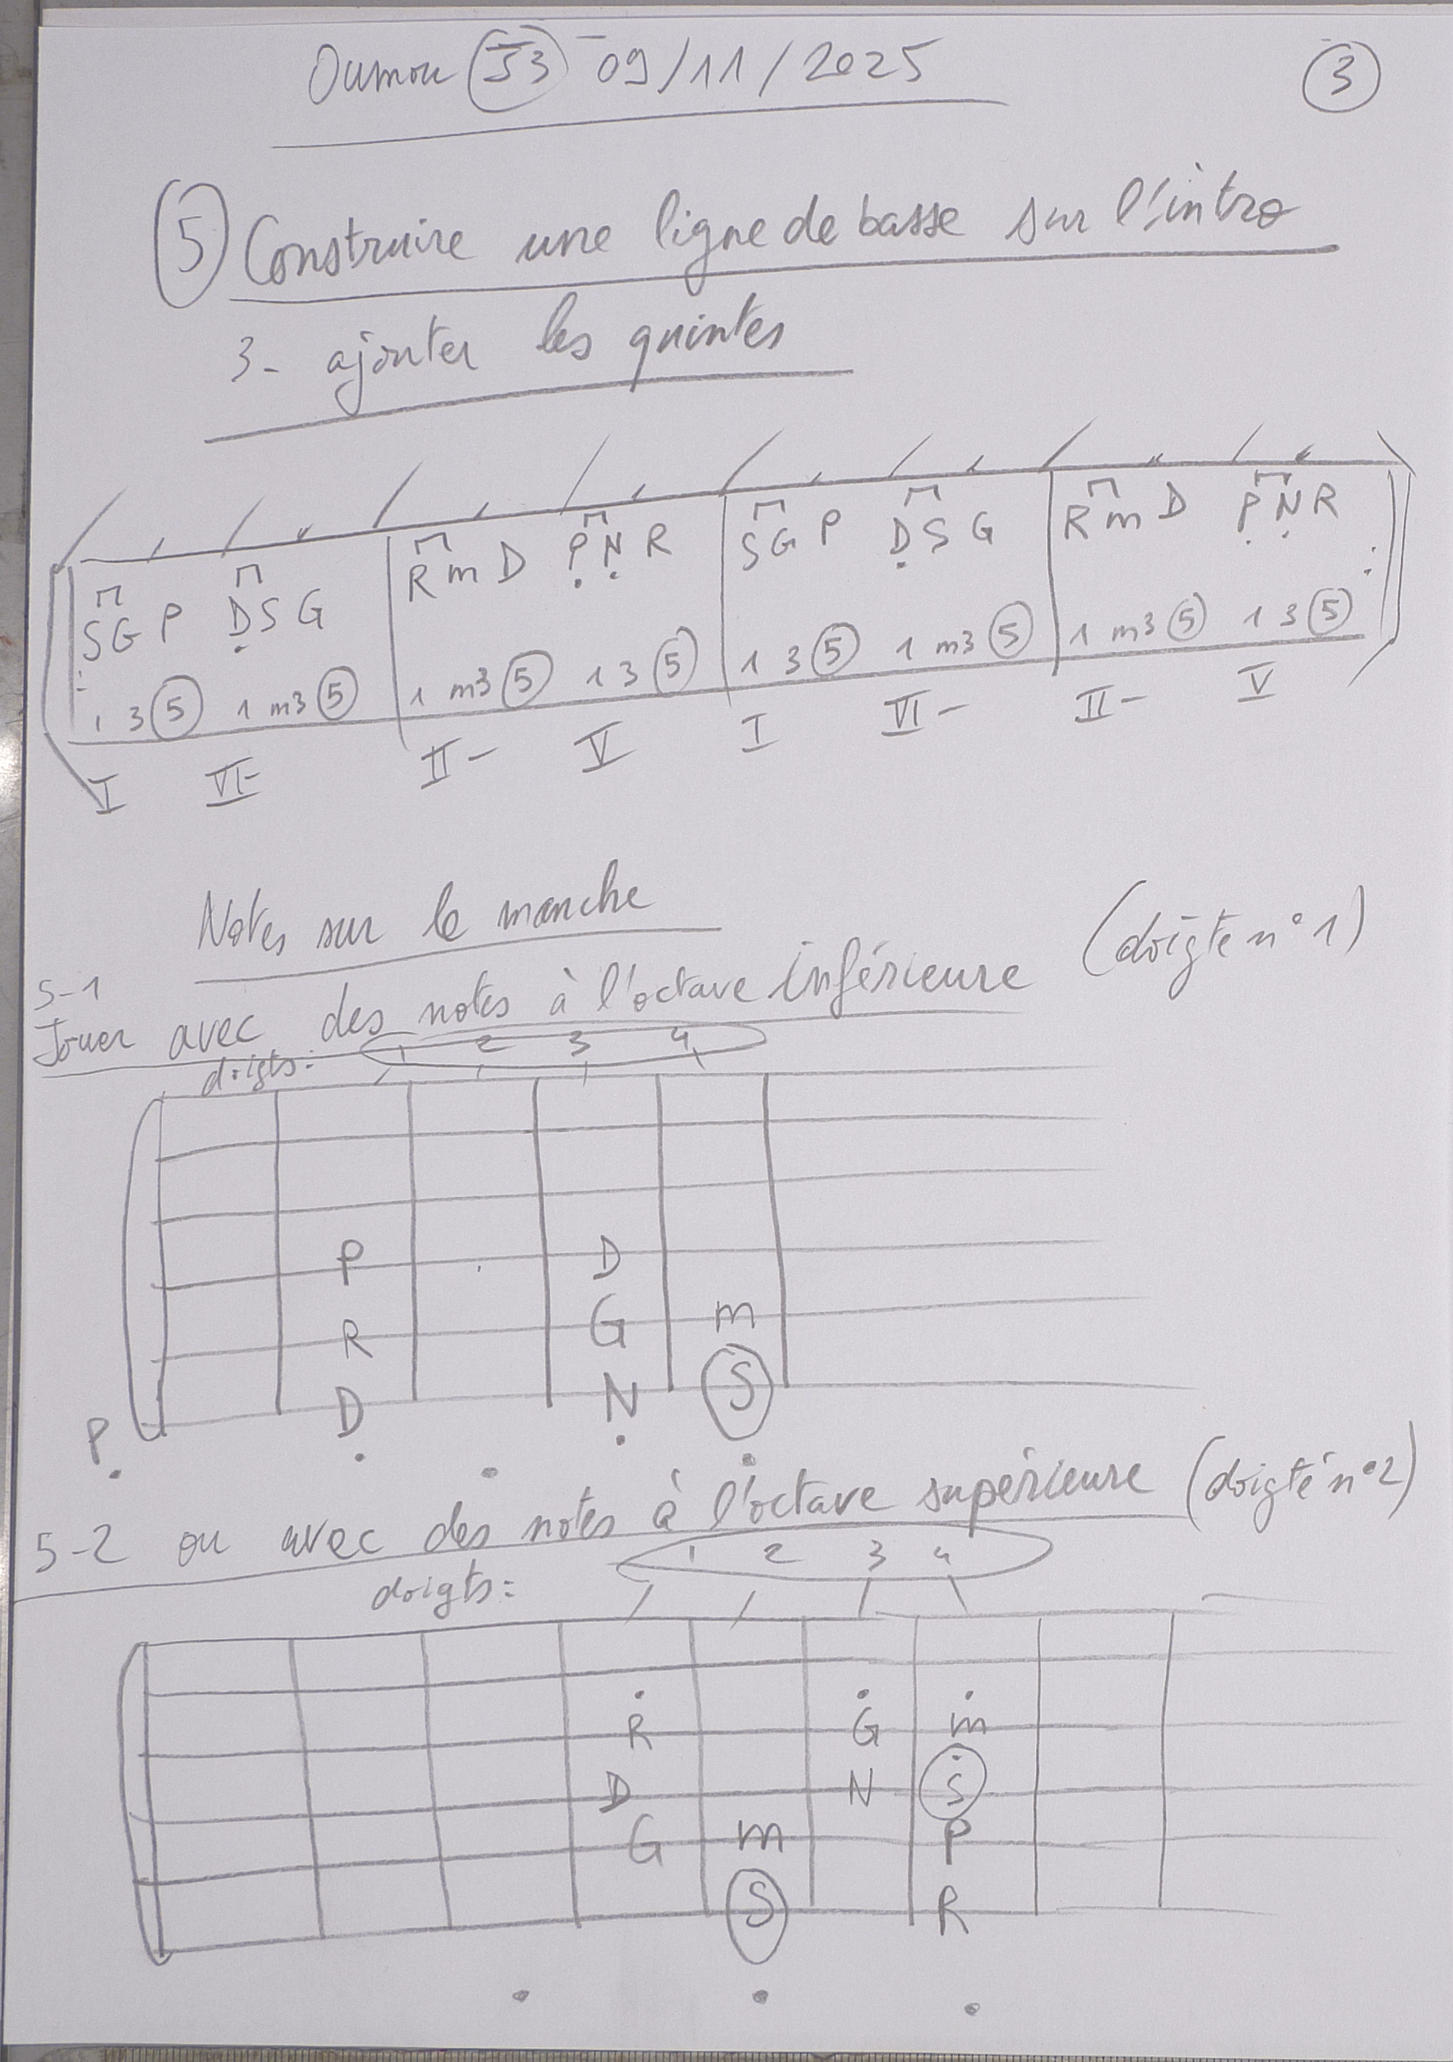 Oumou J3 - 09/11/2025
3
5 Construire une ligne de basse sur l'intro
3- ajouter les quintes
S G P D S G R m D P N R S G P D S G R m D P N R
1 3 5 1 m3 5 1 m3 5 1 3 5 1 3 5 1 m3 5 1 m3 5 1 3 5
I VI- II- V I VI- II- V
Notes sur le manche
5-1
Jouer avec des notes à l'octave inférieure (doigté n°1)
doigts: 1 2 3 4
P D
R G m
D N S
P
5-2 ou avec des notes à l'octave supérieure (doigté n°2)
doigts: 1 2 3 4
R G m
D N S
G m P
S R